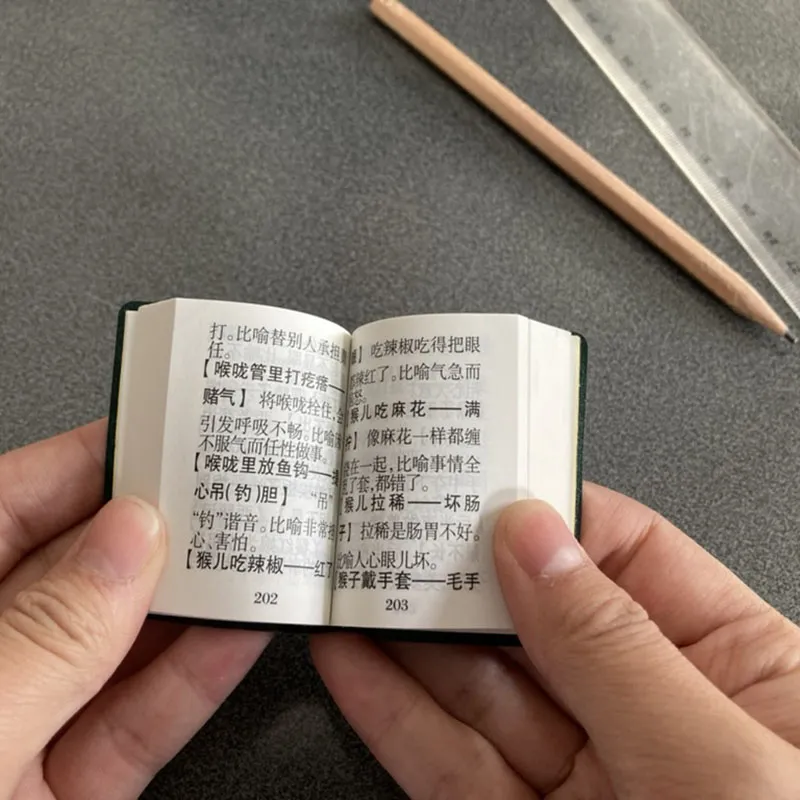 打。比喻替别人承担
任。
【喉咙管里打疙瘩—
赌气】 将喉咙拴住,会
引发呼吸不畅。比喻
不服气而任性做事。
【喉咙里放鱼钩—
心吊(钓)胆】 “吊”
“钓”谐音。比喻非常
心、害怕。
【猴儿吃辣椒——红了
202
】 吃辣椒吃得把眼
辣红了。比喻气急而
怒。
猴儿吃麻花——满
】 像麻花一样都缠
在一起,比喻事情全
了套,都错了。
猴儿拉稀——坏肠
子】 拉稀是肠胃不好。
比喻人心眼儿坏。
猴子戴手套——毛手
203